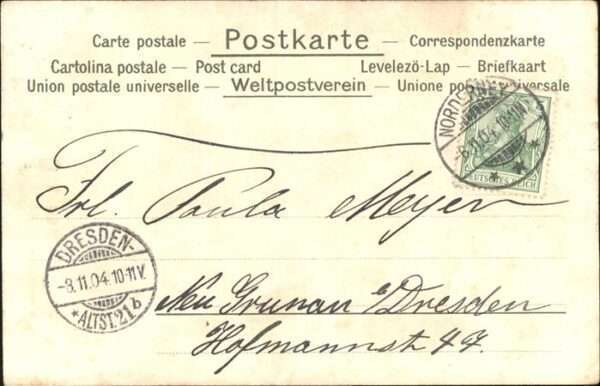 Carte postale — Postkarte — Correspondenzkarte
Cartolina postale — Post card Levelezö-Lap — Briefkaart
Union postale universelle — Weltpostverein — Unione postale universale
NORDERNEY
-8.11.04.10-11V.
DEUTSCHES REICH
Frl. Paula Meyer
DRESDEN-
-8.11.04.10-11V.
*ALTST.21b
Neu Grunau b/Dresden
Hofmannstr 47.